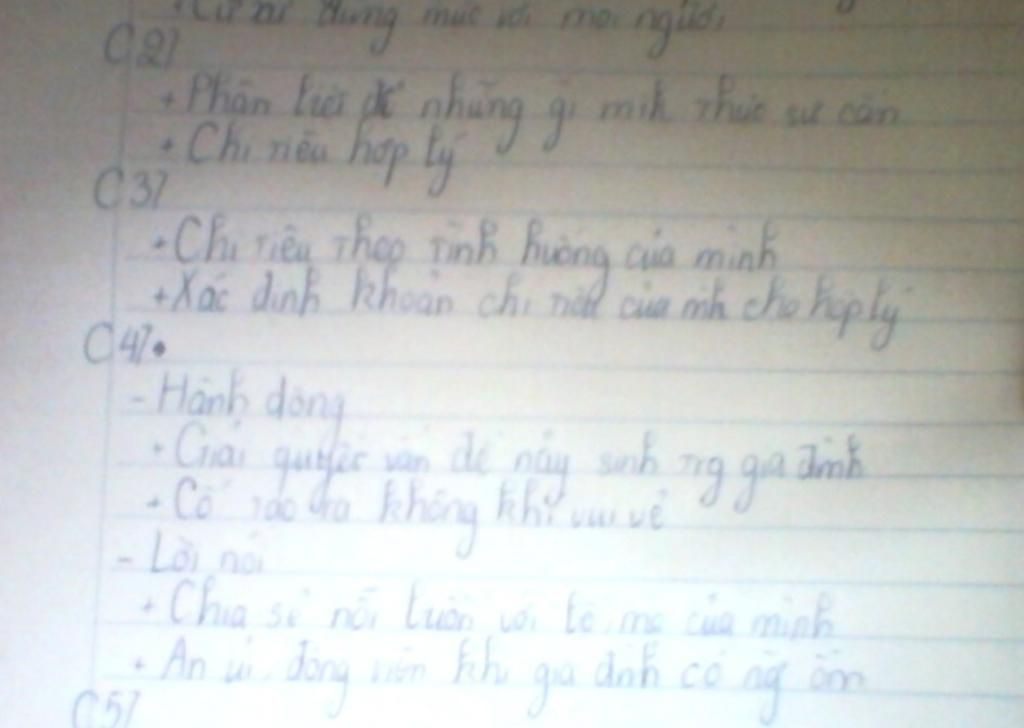 + Cư xử đúng mức với mọi người
C2/
+ Phân biệt để những gì mìh thực sự cần
+ Chi tiêu hợp lý
C3/
+ Chi tiêu theo tình huống của mình
+ Xác định khoản chi tiêu của mìh cho hợp lý
C4/.
- Hành động
+ Giải quyết vấn đề nảy sinh trg gia đình
+ Cố tạo ra không khí vui vẻ
- Lời nói
+ Chia sẻ nỗi buồn với bố, mẹ của mình
+ An ủi, động viên khi gia đình có ng ốm
C5/